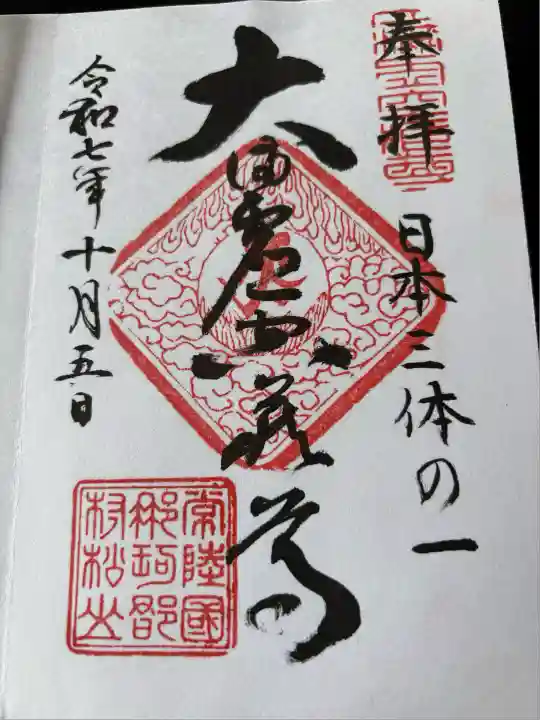 奉拝
日本三体の一
大満虚空蔵尊
令和七年十月五日
常陸國
那珂郡
村松山